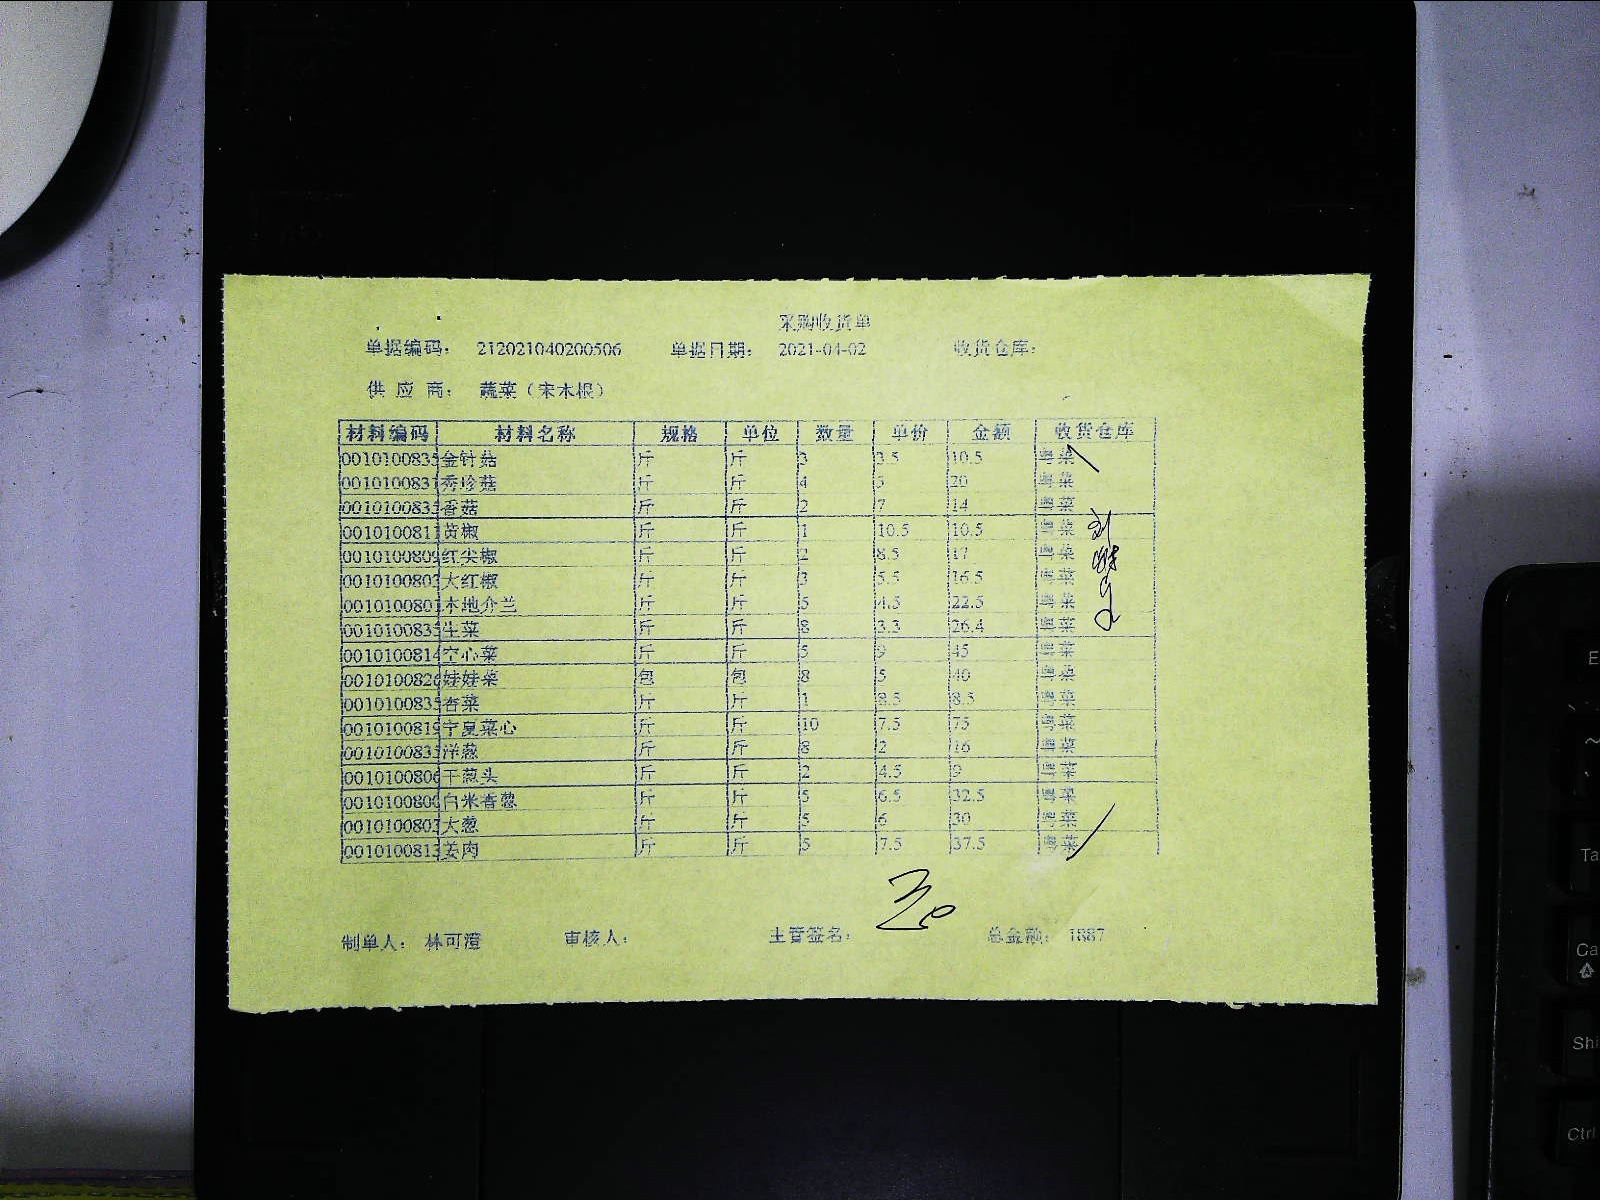 采购收货单
单据编码： 212021040200506 单据日期： 2021-04-02 收货仓库：
供 应 商： 蔬菜（宋木根）
材料编码 材料名称 规格 单位 数量 单价 金额 收货仓库
001010083 金针菇 斤 斤 3 3.5 10.5
001010083 秀珍菇 斤 斤 4 5 20
001010083 香菇 斤 斤 2 7 14
001010081 黄椒 斤 斤 1 10.5 10.5
001010080 红尖椒 斤 斤 2 8.5 17
001010080 大红椒 斤 斤 3 5.5 16.5
001010080 本地介兰 斤 斤 5 4.5 22.5
001010083 生菜 斤 斤 8 3.3 26.4
001010081 空心菜 斤 斤 5 9 45
001010082 娃娃菜 包 包 8 5 40
001010083 香菜 斤 斤 1 8.5 8.5
001010081 宁夏菜心 斤 斤 10 7.5 75
001010083 洋葱 斤 斤 8 2 16
001010080 干葱头 斤 斤 2 4.5 9
001010080 白米香葱 斤 斤 5 6.5 32.5
001010080 大葱 斤 斤 5 6 30
001010081 姜肉 斤 斤 5 7.5 37.5
制单人： 林可澄 审核人： 主管签名： 总金额： 1887
Ctrl